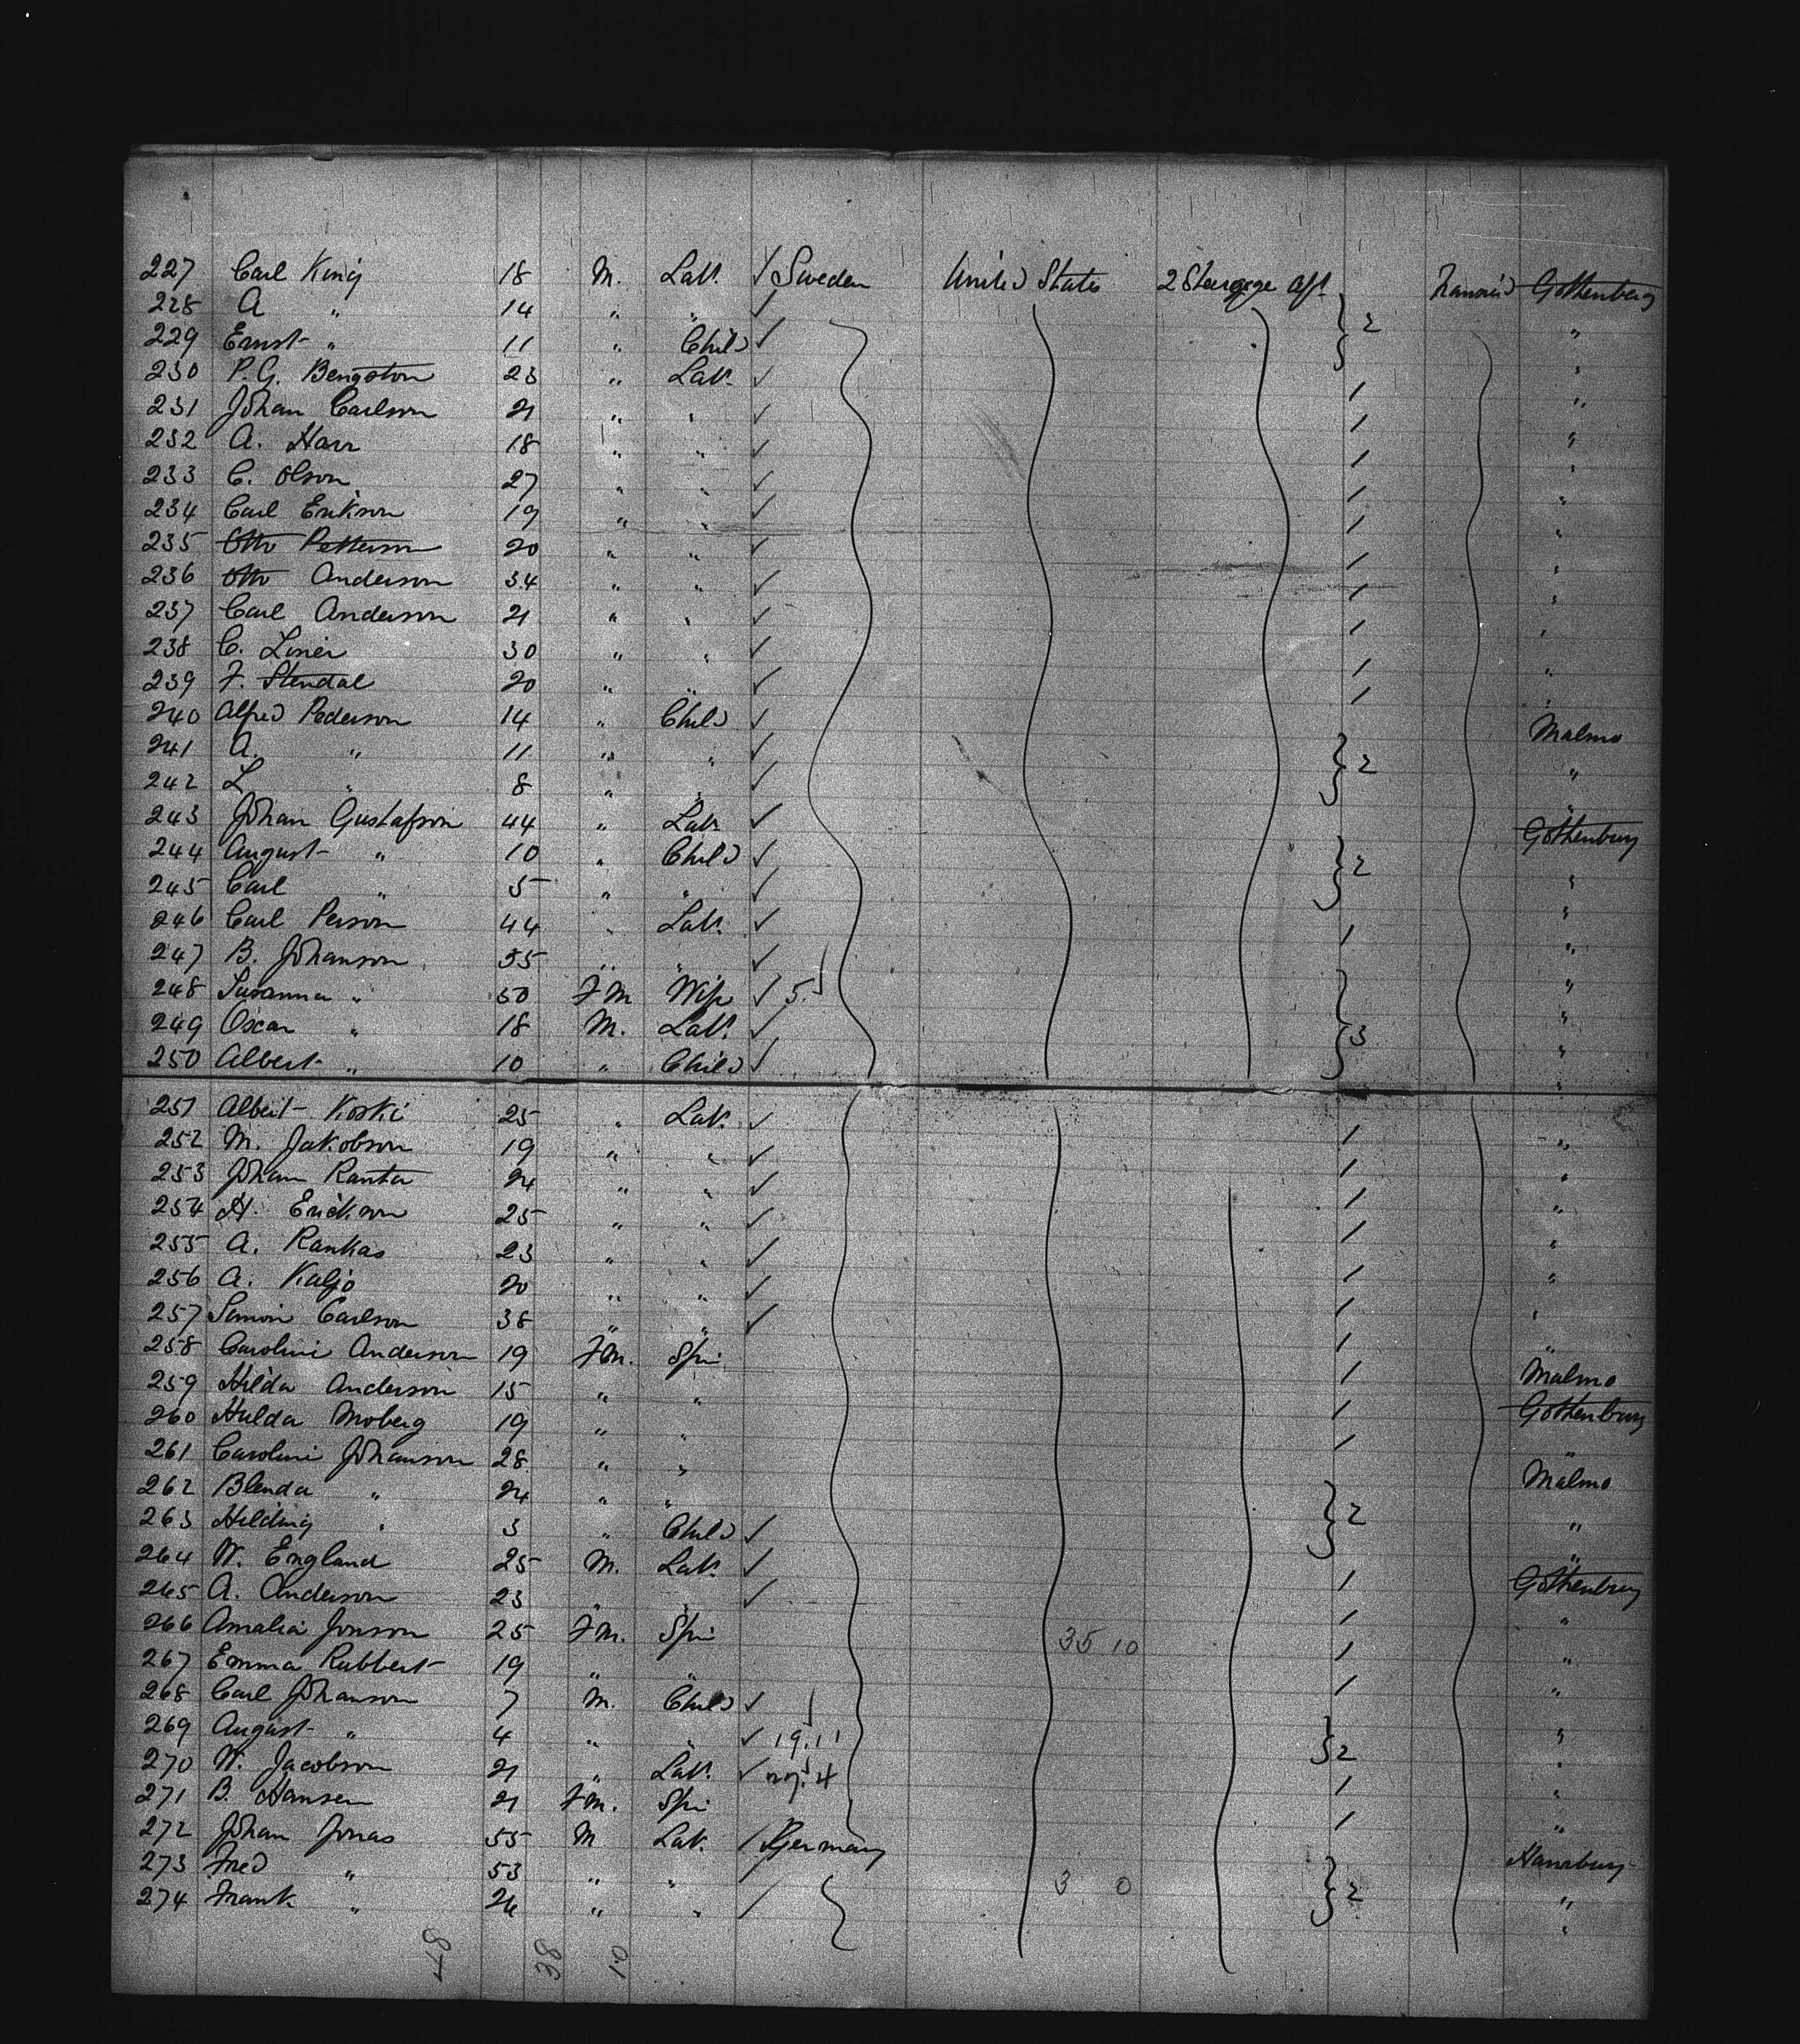 227 Carl King 18 M. Lab. ✓ Sweden United States 2 Steerage Aft Transit Gothenberg
228 A " 14 " " ✓ "
229 Ernst " 11 " Child ✓ } 2 "
230 P. G. Bengston 23 " Lab. ✓ 1 "
231 Johan Carlson 21 " " ✓ 1 "
232 A. Harr 18 " " ✓ 1 "
233 C. Olson 27 " " ✓ 1 "
234 Carl Erikson 19 " " ✓ 1 "
235 Otto Petterson 20 " " ✓ 1 "
236 Otto Anderson 34 " " ✓ 1 "
237 Carl Anderson 21 " " ✓ 1 "
238 C. Linér 30 " " ✓ 1 "
239 F. Stendal 20 " " ✓ 1 "
240 Alfred Pederson 14 " Child ✓ Malmo
241 A. " 11 " " ✓ } 2 "
242 L " 8 " " ✓ "
243 Johan Gustafson 44 " Lab ✓ Gothenburg
244 August " 10 " Child ✓ } 2 "
245 Carl " 5 " " ✓ "
246 Carl Person 44 " Lab. ✓ 1 "
247 B. Johanson 55 " " ✓ "
248 Susanna " 50 FM Wife ✓ 5. "
249 Oscar " 18 M. Lab. ✓ } 3 "
250 Albert " 10 " Child ✓ "
251 Albert Koski 25 " Lab. ✓ 1 "
252 M. Jakobson 19 " " ✓ 1 "
253 Johan Ranta 24 " " ✓ 1 "
254 H. Erickson 25 " " ✓ 1 "
255 A. Rankas 23 " " ✓ 1 "
256 A. Kaljo 20 " " ✓ 1 "
257 Simon Carlson 38 " " ✓ 1 "
258 Carolini Anderson 19 FM. Spi 1 Malmo
259 Hilda Anderson 15 " " 1 Gothenburg
260 Hulda Moberg 19 " " 1 "
261 Carolini Johanson 28 " " Malmo
262 Blenda " 24 " " } 2 "
263 Hilding " 3 " Child ✓ "
264 W. England 25 M. Lab. ✓ 1 Gothenburg
265 A. Anderson 23 " " ✓ 1 "
266 Amalia Jonson 25 FM. Spi 35 10 1 "
267 Emma Rubbert 19 " " 1 "
268 Carl Johanson 7 M. Child ✓ "
269 August " 4 " " ✓ 19.11 } 2 "
270 W. Jacobson 21 " Lab. ✓ 1 "
271 B. Hansen 21 FM. Spi 1 "
272 Johan Jonas 55 M Lab. / Germany Hamburg
273 Fred " 53 " " / 3 0 } 2 "
274 Frank " 26 " " / "
48 38 10